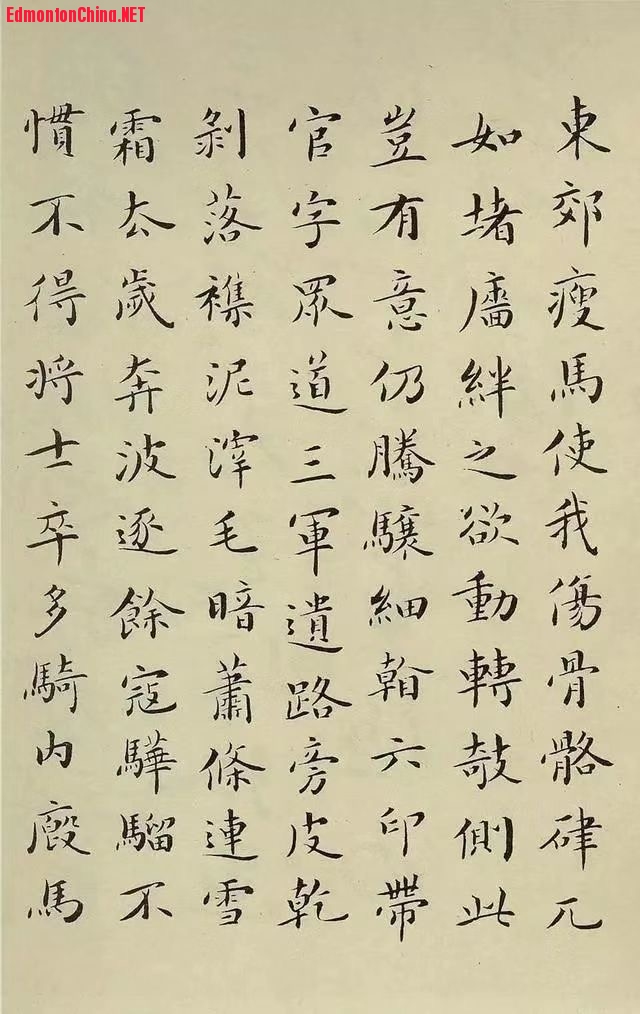 EdmontonChina.NET
東郊瘦馬使我傷骨骼硉兀
如堵牆絆之欲動轉欹側此
豈有意仍騰驤細看六印帶
官字眾道三軍遺路旁皮乾
剝落襍泥滓毛暗蕭條連雪
霜去歲奔波逐餘寇驊騮不
慣不得將士卒多騎內廄馬